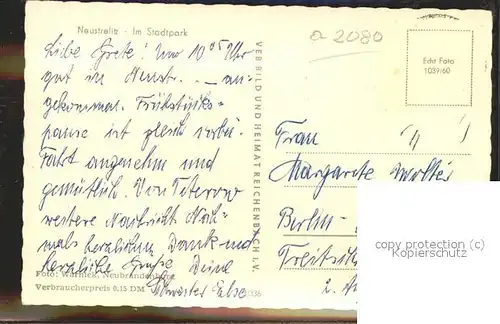 Neustrelitz · Im Stadtpark
Liebe Grete! Um 10 05 Uhr
gut in Neust. — an-
gekommen. Frühstücks-
pause ist gleich vorbei.
Fahrt angenehm und
gemütlich. Von Teterow
weitere Nachricht. Noch-
mals herzlichen Dank und
herzliche Grüße Deine
Schwester Else
Foto: Neubrandenburg
Verbraucherpreis 0,15 DM
VEB BILD UND HEIMAT REICHENBACH I. V.
a 2080
Echt Foto
1039/60
Frau
Margarete Wolter
Berlin-
copyright protection (c)
Kopierschutz